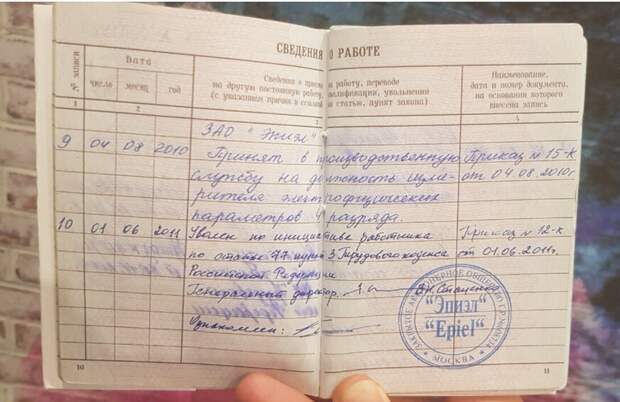 СВЕДЕНИЯ О РАБОТЕ
№ записи
Дата
число месяц год
Сведения о приеме на работу, переводе
на другую постоянную работу, квалификации, увольнении
(с указанием причин и ссылкой на статью, пункт закона)
Наименование,
дата и номер документа,
на основании которого
внесена запись
1 2 3 4
ЗАО "Эпиэл"
9 04 08 2010 Принят в производственную Приказ № 15-к
службу на должность изме- от 04.08.2010г
рителя электрофизических
параметров 4 разряда.
10 01 06 2011 Уволен по инициативе работника Приказ № 12-к
по статье 77 пункт 3 Трудового кодекса от 01.06.2011г.
Российской Федерации
Генеральный директор В.Н. Стаценко
Ознакомлен:
ЗАКРЫТОЕ АКЦИОНЕРНОЕ ОБЩЕСТВО
"Эпиэл"
"Epiel"
МОСКВА
10 11